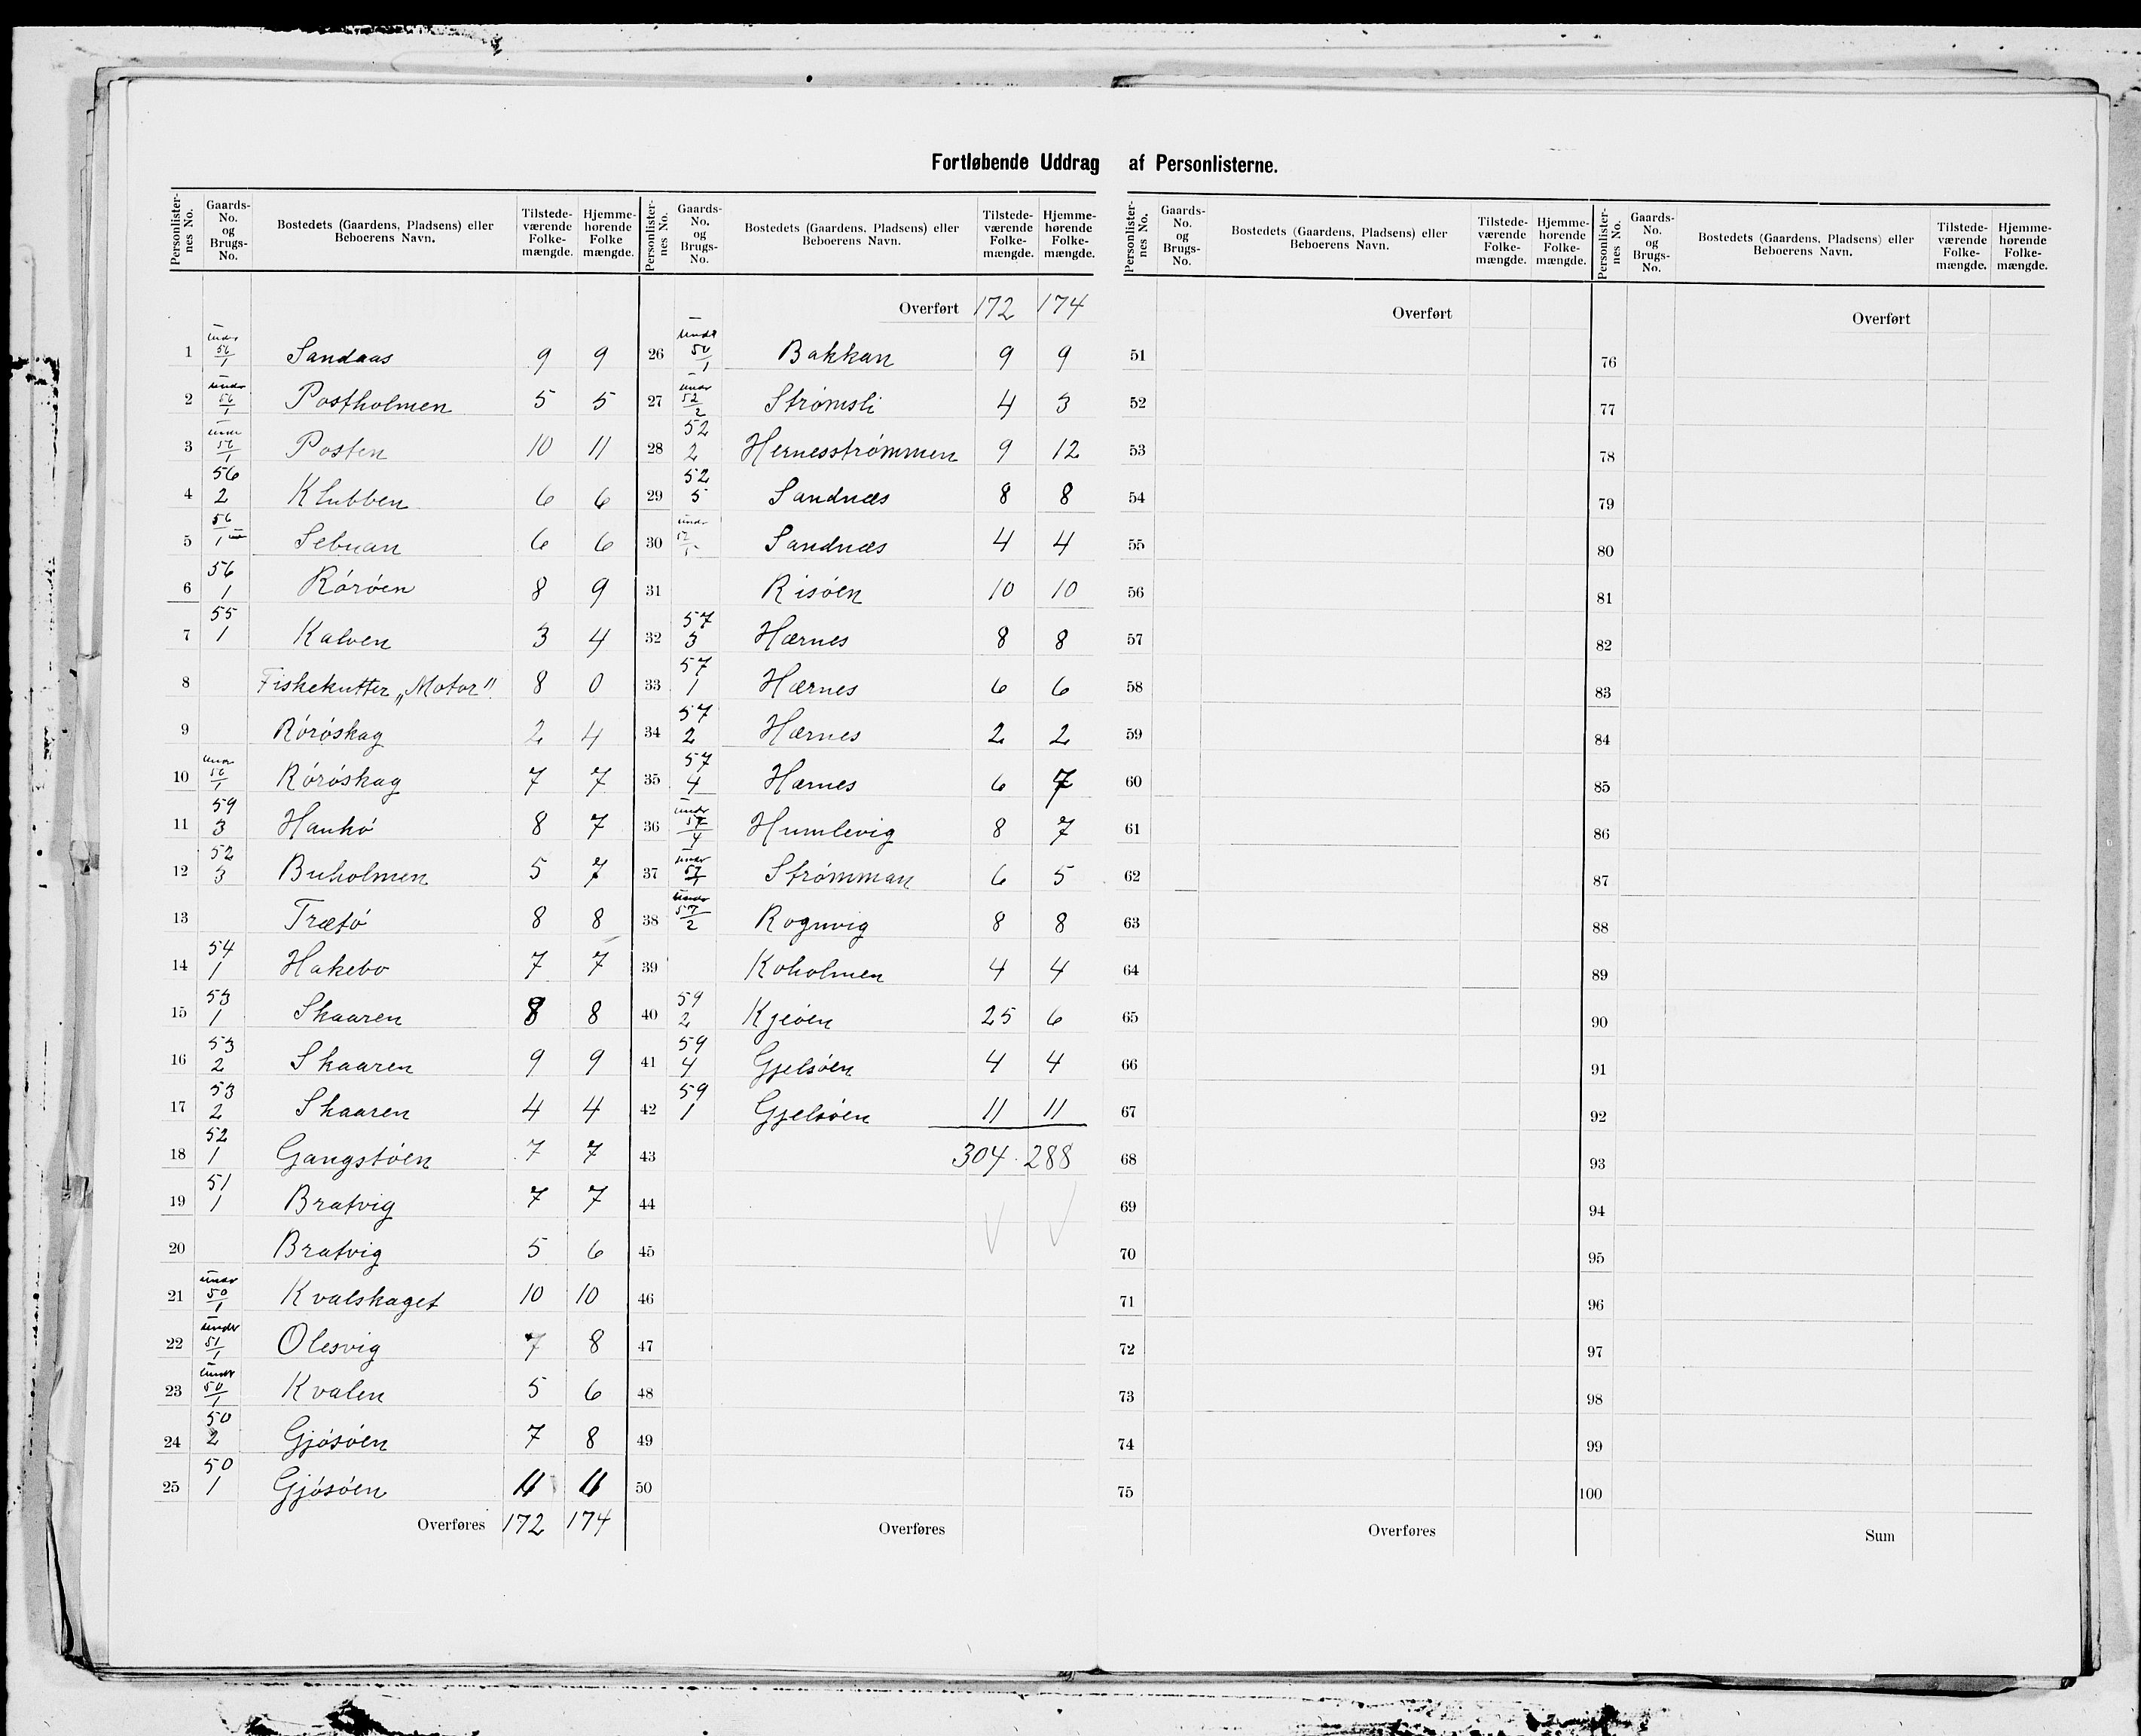 Fortløbende Uddrag af Personlisterne.
Personlister-nes No. | Gaards-No. og Brugs-No. | Bostedets (Gaardens, Pladsens) eller Beboerens Navn. | Tilstede-værende Folke-mængde. | Hjemme-hørende Folke mængde.
1 undr 56/1 Sandaas 9 9
2 undr 56/1 Postholmen 5 5
3 undr 56/1 Posten 10 11
4 56 2 Klubben 6 6
5 56/1 Sebuan 6 6
6 56 1 Rørøen 8 9
7 55 1 Kalven 3 4
8 Fiskekutter „Motor" 8 0
9 Rørøskag 2 4
10 undr 56/1 Rørøskag 7 7
11 59 3 Hanhø 8 7
12 52 3 Buholmen 5 7
13 Trætø 8 8
14 54 1 Hakebo 7 7
15 53 1 Skaaren 8 8
16 53 2 Skaaren 9 9
17 53 2 Skaaren 4 4
18 52 1 Gangstøen 7 7
19 51 1 Bratvig 7 7
20 Bratvig 5 6
21 undr 50/1 Kvalskaget 10 10
22 undr 51/1 Olesvig 7 8
23 undr 50/1 Kvalen 5 6
24 50 2 Gjøsøen 7 8
25 50 1 Gjøsøen 11 11
Overføres 172 174
Personlister-nes No. | Gaards-No. og Brugs-No. | Bostedets (Gaardens, Pladsens) eller Beboerens Navn. | Tilstede-værende Folke-mængde. | Hjemme-hørende Folke-mængde.
Overført 172 174
26 undr 50/1 Bakkan 9 9
27 undr 52/2 Strømsli 4 3
28 52 2 Hernesstrømmen 9 12
29 52 5 Sandnæs 8 8
30 undr Sandnæs 4 4
31 Risøen 10 10
32 57 3 Hærnes 8 8
33 57 1 Hærnes 6 6
34 57 2 Hærnes 2 2
35 57 4 Hærnes 6 7
36 undr 57/4 Humlevig 8 7
37 undr 57/1 Strømman 6 5
38 undr 57/2 Rognvig 8 8
39 Koholmen 4 4
40 59 2 Kjeøen 25 6
41 59 4 Gjelsøen 4 4
42 59 1 Gjelsøen 11 11
43 304 288
44
45
46
47
48
49
50
Overføres
Personlister-nes No. | Gaards-No. og Brugs-No. | Bostedets (Gaardens, Pladsens) eller Beboerens Navn. | Tilstede-værende Folke-mængde. | Hjemme-hørende Folke-mængde.
Overført
51
52
53
54
55
56
57
58
59
60
61
62
63
64
65
66
67
68
69
70
71
72
73
74
75
Overføres
Personlister-nes No. | Gaards-No. og Brugs-No. | Bostedets (Gaardens, Pladsens) eller Beboerens Navn. | Tilstede-værende Folke-mængde. | Hjemme-hørende Folke-mængde.
Overført
76
77
78
79
80
81
82
83
84
85
86
87
88
89
90
91
92
93
94
95
96
97
98
99
100
Sum